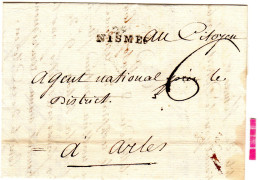 NISMES au Citoyen
6
agent national près le
District.
à arles